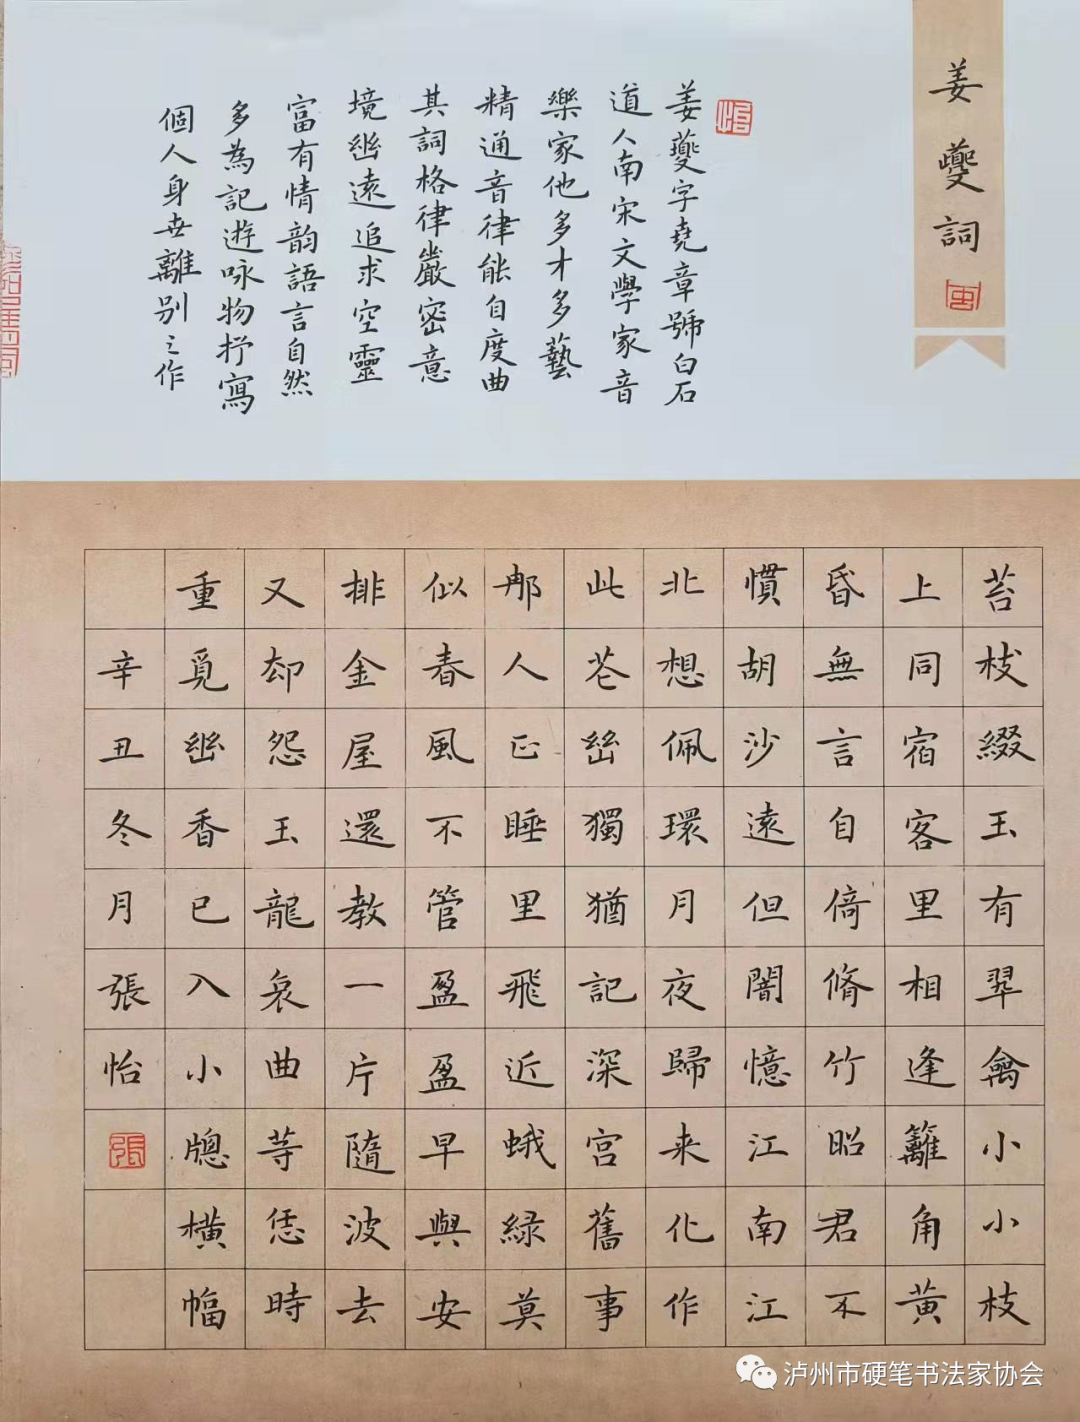 姜夔詞
姜夔字堯章號白石
道人南宋文學家音
樂家他多才多藝
精通音律能自度曲
其詞格律嚴密意
境幽遠追求空靈
富有情韵語言自然
多為記遊咏物抒寫
個人身世離别之作
苔枝綴玉有翠禽小小枝
上同宿客里相逢籬角黄
昏無言自倚脩竹昭君不
慣胡沙遠但闇憶江南江
北想佩環月夜歸来化作
此花幽獨猶記深宫舊事
那人正睡里飛近蛾緑莫
似春風不管盈盈早與安
排金屋還教一片隨波去
又却怨玉龍哀曲等恁時
重覓幽香已入小牕横幅
辛丑冬月張怡
張
泸州市硬笔书法家协会